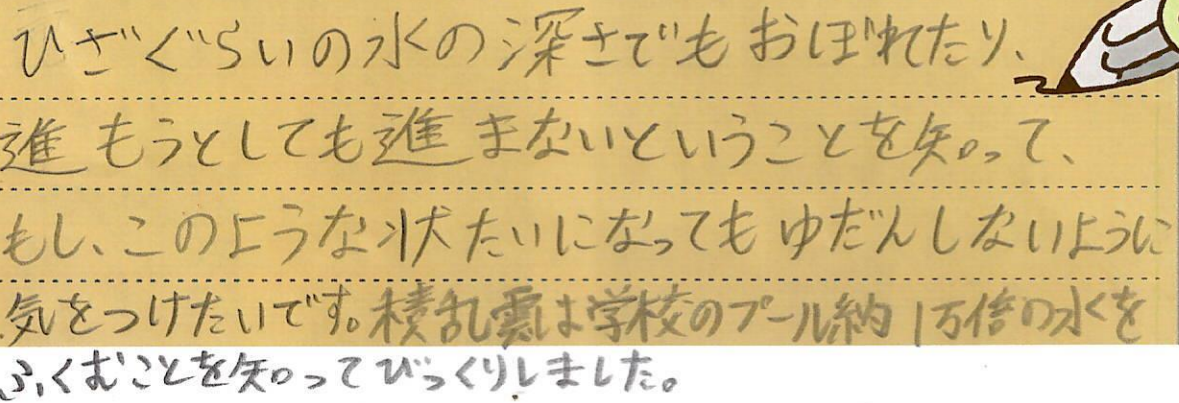 ひざぐらいの水の深さでもおぼれたり、
進もうとしても進まないということを知って、
もし、このような状たいになってもゆだんしないように
気をつけたいです。積乱雲は学校のプール納1万倍の水を
ふくむことを知ってびっくりしました。